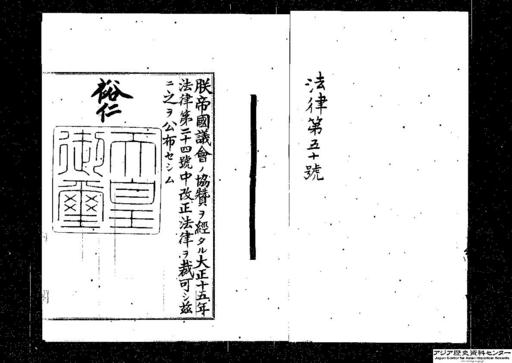 法律第五十號
朕帝國議會ノ協贊ヲ經タル大正十五年
法律第二十四號中改正法律ヲ裁可シ茲
ニ之ヲ公布セシム
裕仁
天皇
御璽
アジア歴史資料センター
Japan Center for Asian Historical Records